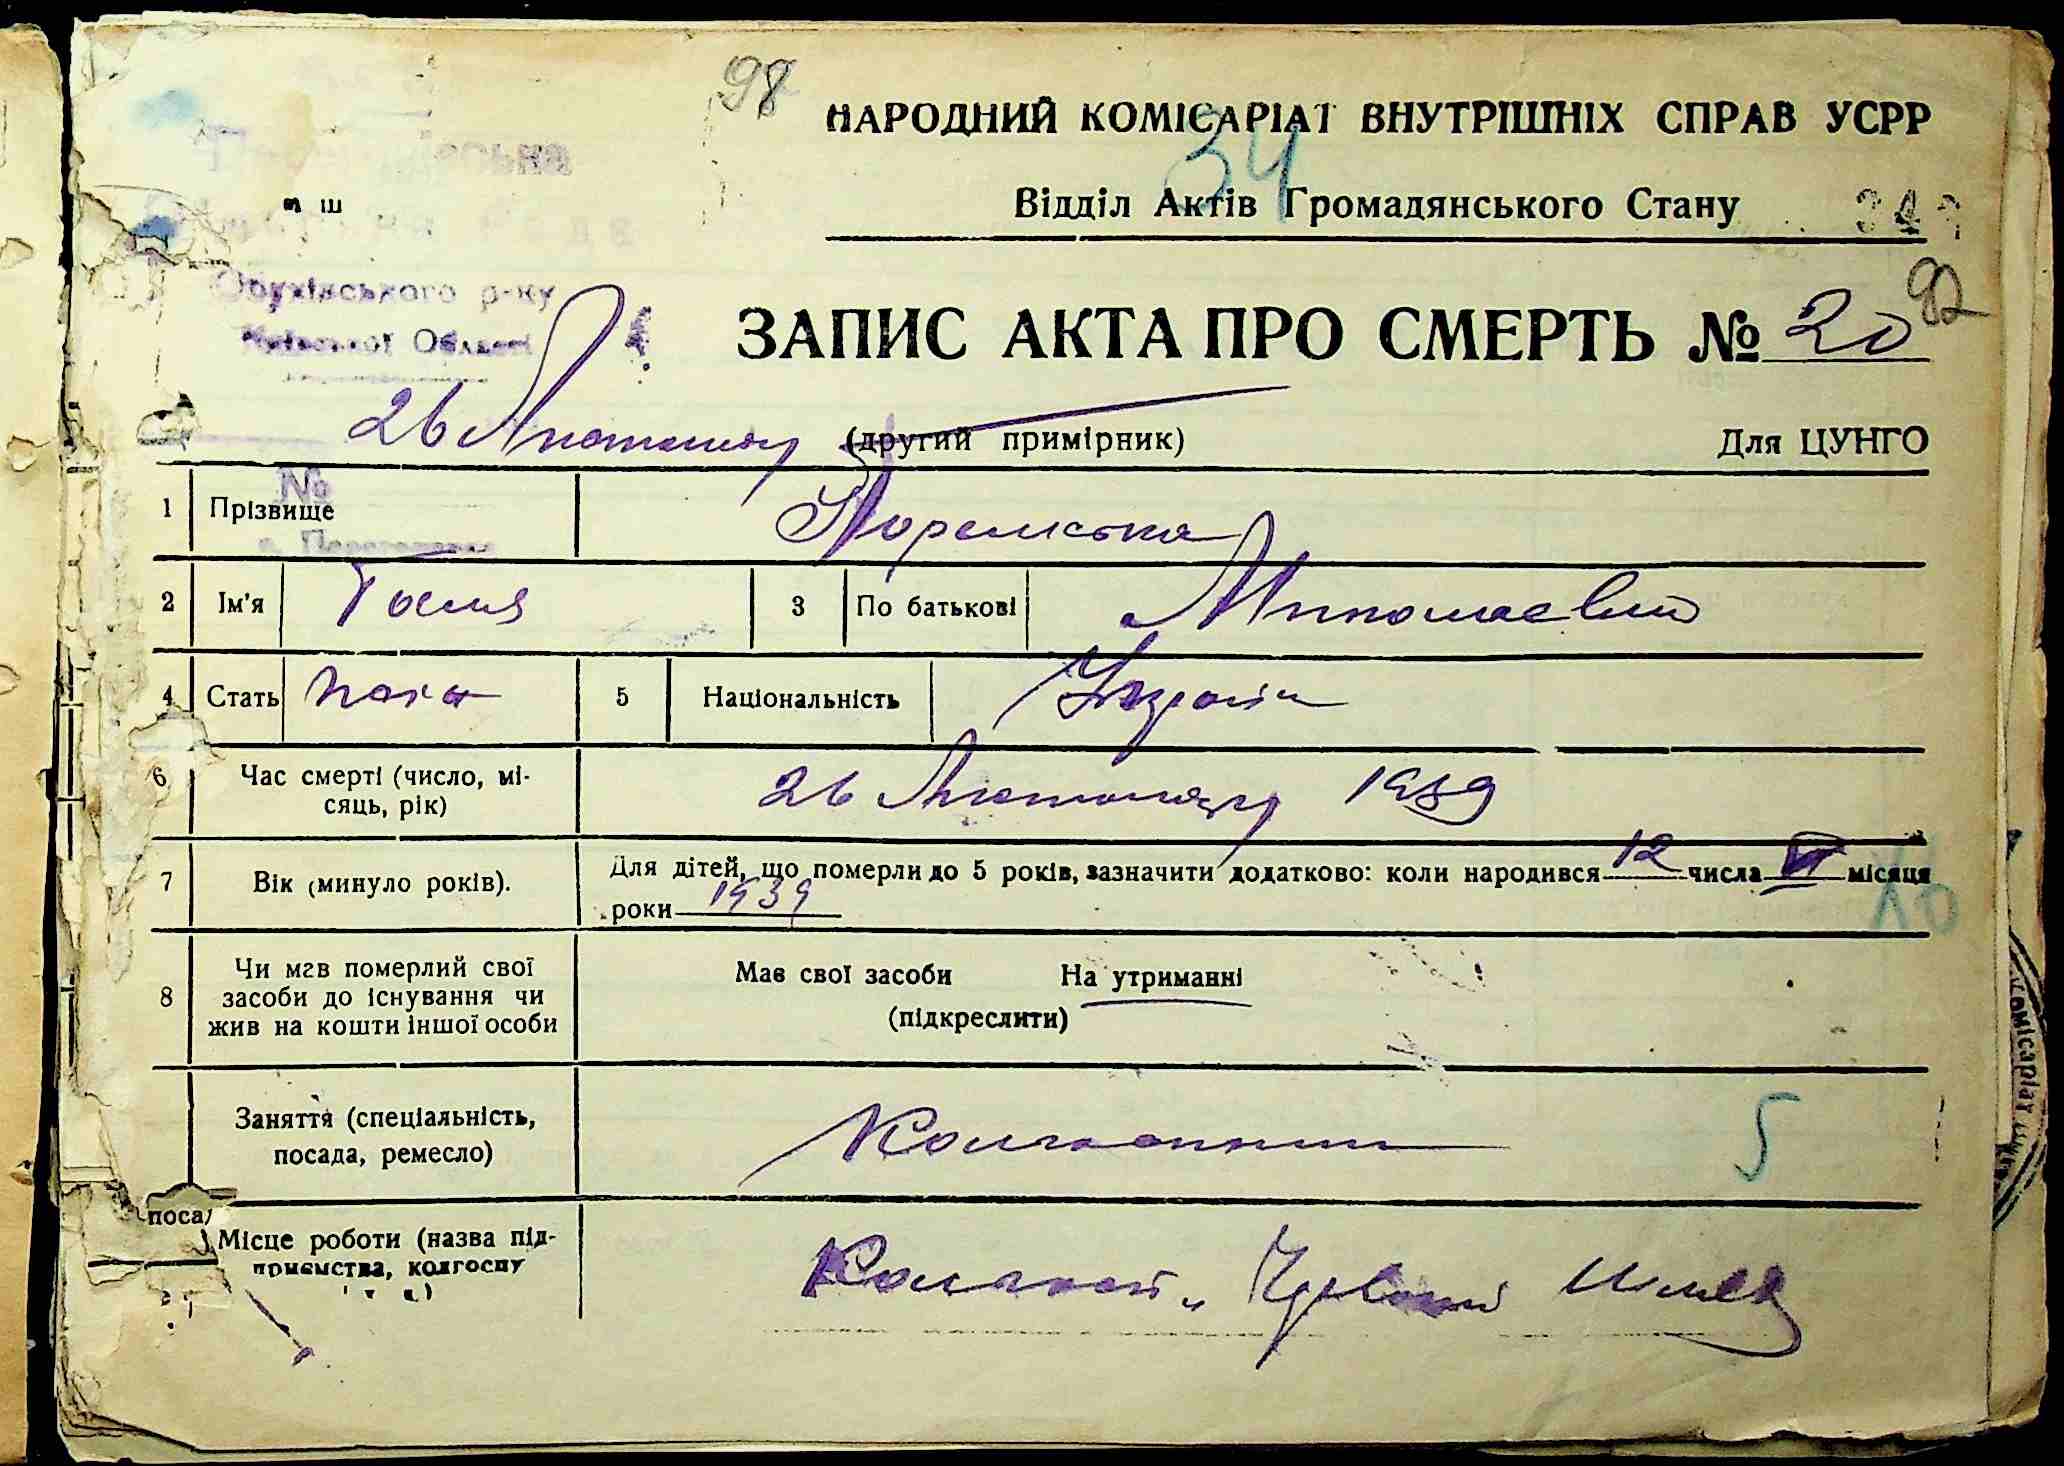 98
НАРОДНИЙ КОМІСАРІАТ ВНУТРІШНІХ СПРАВ УСРР
34
Відділ Актів Громадянського Стану
Обухівського р-ну
Київської Області
92
ЗАПИС АКТА ПРО СМЕРТЬ № 20
26 (другий примірник) Для ЦУНГО
№
1 Прізвище
2 Ім'я Галя 3 По батькові
4 Стать 5 Національність Україн
6 Час смерті (число, мі-
сяць, рік)
26 1939
7 Вік (минуло років).
Для дітей, що померли до 5 років, зазначити додатково: коли народився 12 числа VI місяця
роки 1939
10
8 Чи мав померлий свої
засоби до існування чи
жив на кошти іншої особи
Має свої засоби На утриманні
(підкреслити)
Заняття (спеціальність,
посада, ремесло)
5
поса
Місце роботи (назва під-
приємства, колгоспу
Колгосп „Червоний Шлях